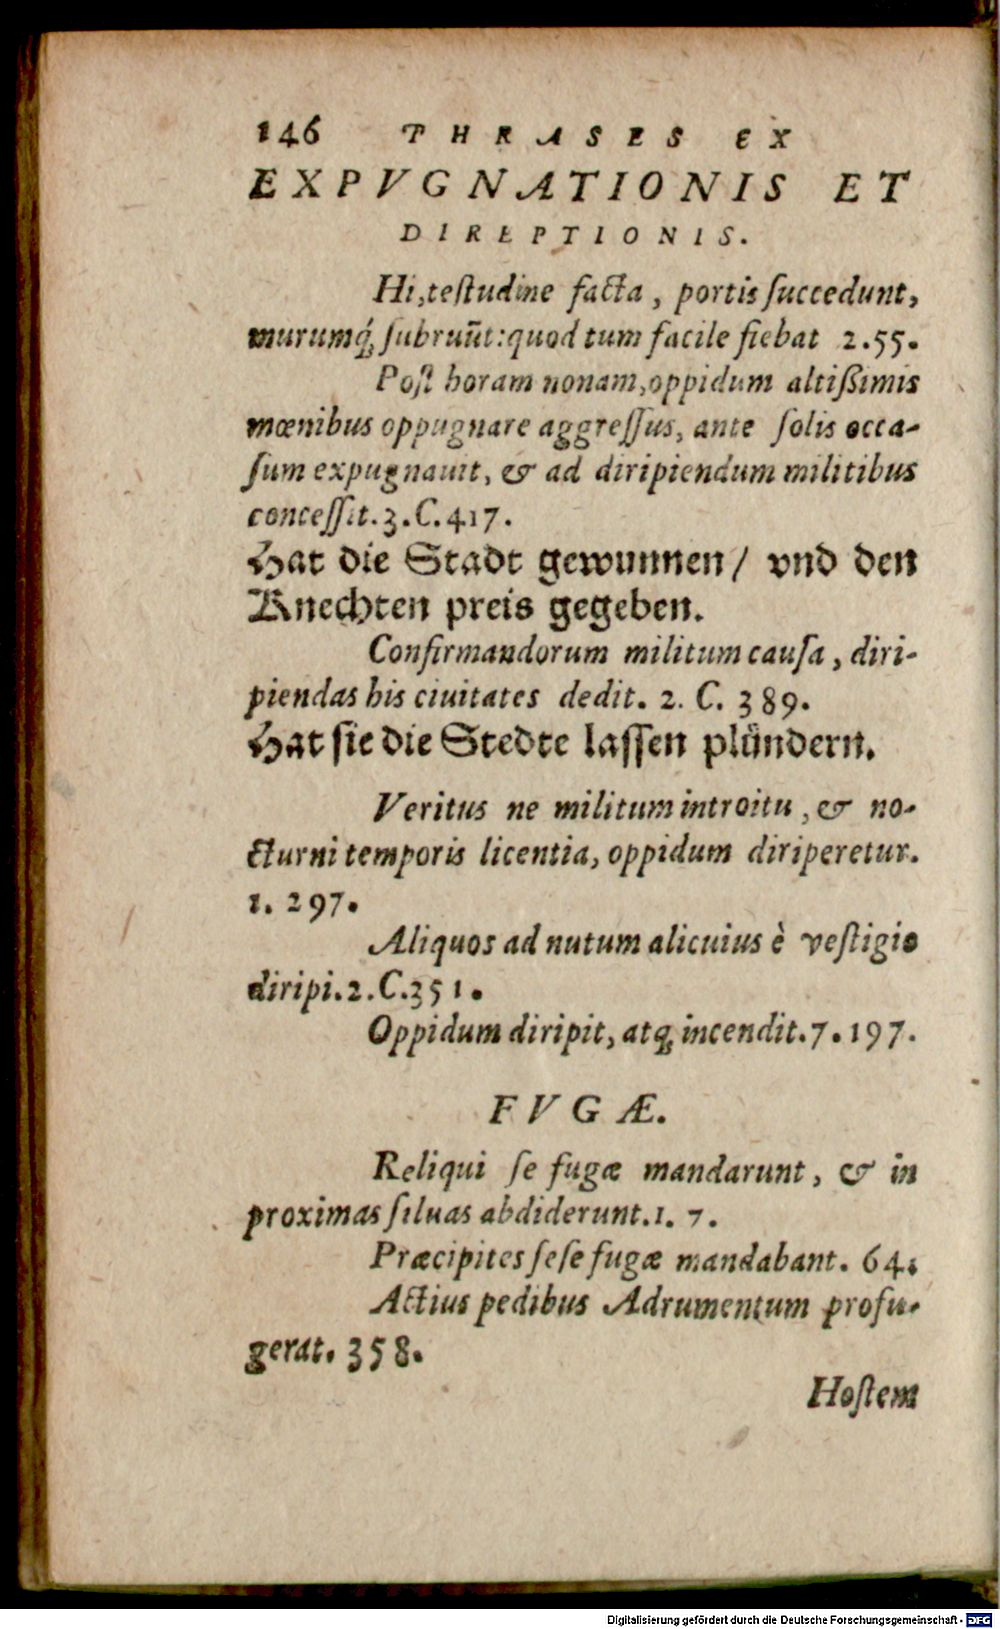 146 PHRASES EX
EXPVGNATIONIS ET
DIREPTIONIS.
Hi,teſtudine facta, portis ſuccedunt,
murumq́; ſubruũt:quod tum facile fiebat 2.55.
Poſt horam nonam,oppidum altißimis
mœnibus oppugnare aggreſſus, ante ſolis occa-
ſum expugnauit, & ad diripiendum militibus
conceſſit.3.C.417.
Hat die Stadt gewunnen/ vnd den
Knechten preis gegeben.
Confirmandorum militum cauſa, diri-
piendas his ciuitates dedit. 2. C. 389.
Hat ſie die Stedte laſſen plündern.
Veritus ne militum introitu, & no-
cturni temporis licentia, oppidum diriperetur.
1. 297.
Aliquos ad nutum alicuius è veſtigio
diripi.2.C.351.
Oppidum diripit, atq; incendit.7.197.
FVGÆ.
Reliqui ſe fugæ mandarunt, & in
proximas ſiluas abdiderunt.1. 7.
Præcipites ſeſe fugæ mandabant. 64.
Actius pedibus Adrumentum profu-
gerat. 358.
Hoſtem
Digitalisierung gefördert durch die Deutsche Forschungsgemeinschaft - DFG